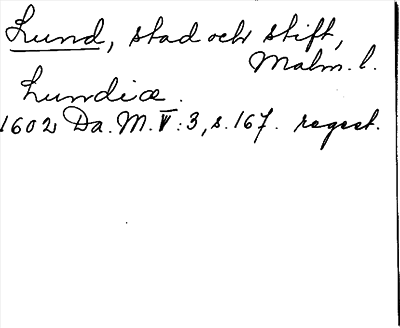 Lund, stad och stift,
Malm. l.
Lundiæ.
1602 Da. M. V:3, s. 167. regest.